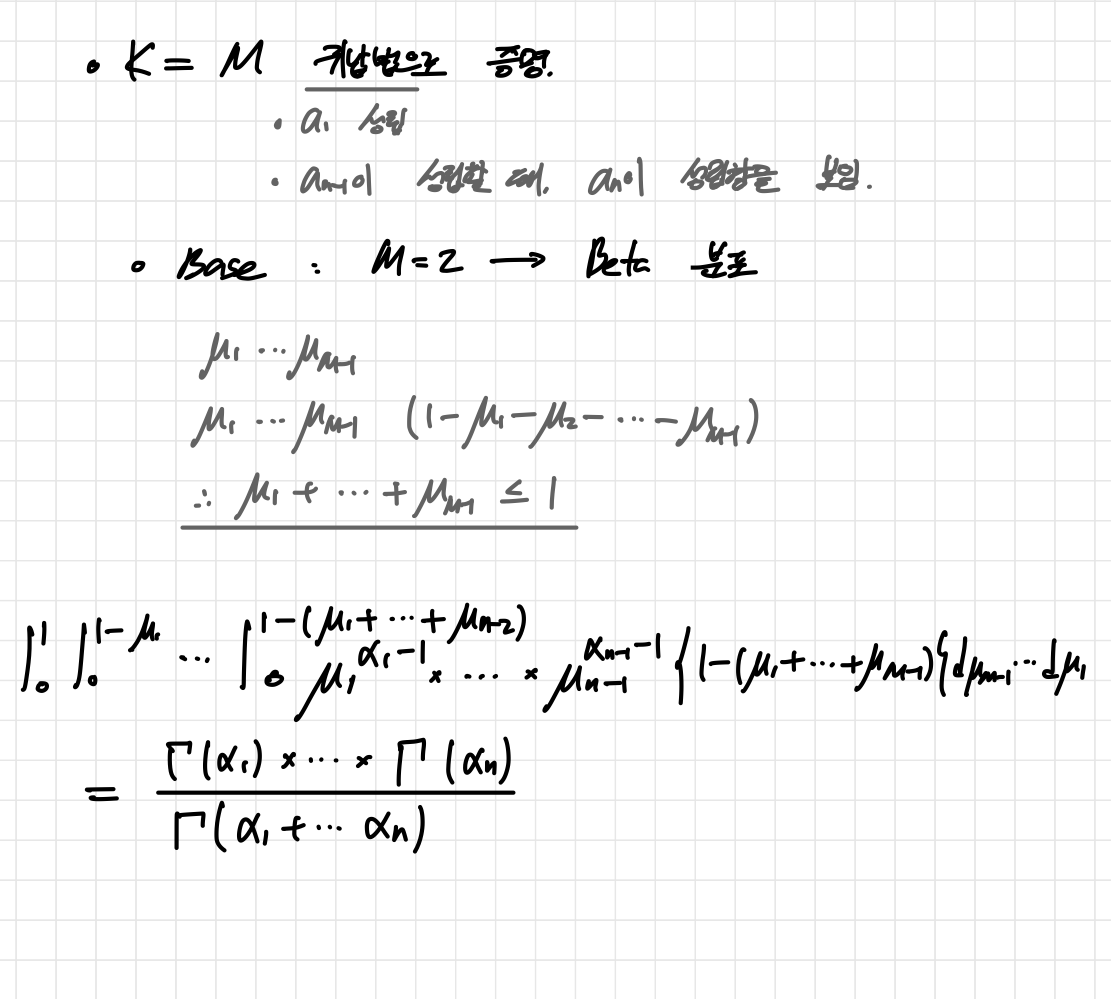 • K = M 귀납법으로 증명.
• a₁ 성립
• aₙ₋₁이 성립할 때, aₙ이 성립함을 보임.
• Base : M = 2 → Beta 분포
μ₁ ⋯ μ_{M-1}
μ₁ ⋯ μ_{M-1} (1 - μ₁ - μ₂ - ⋯ - μ_{M-1})
∴ μ₁ + ⋯ + μ_{M-1} ≤ 1
∫₀^{1} ∫₀^{1-μ₁} ⋯ ∫₀^{1-(μ₁+⋯+μ_{n-2})} μ₁^{α₁-1} × ⋯ × μ_{n-1}^{α_{n-1}-1} {1-(μ₁+⋯+μ_{M-1}){dμ_{M-1}⋯dμ₁
= Γ(α₁) × ⋯ × Γ(αₙ) / Γ(α₁ + ⋯ αₙ)